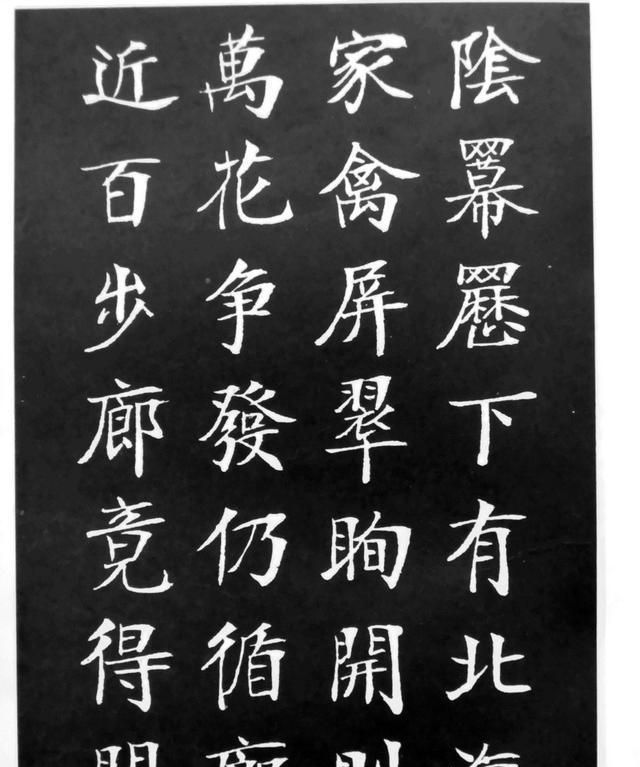 陰羃䍥下有北
家禽屏翠眴開
萬花争發仍循
近百步廊竟得